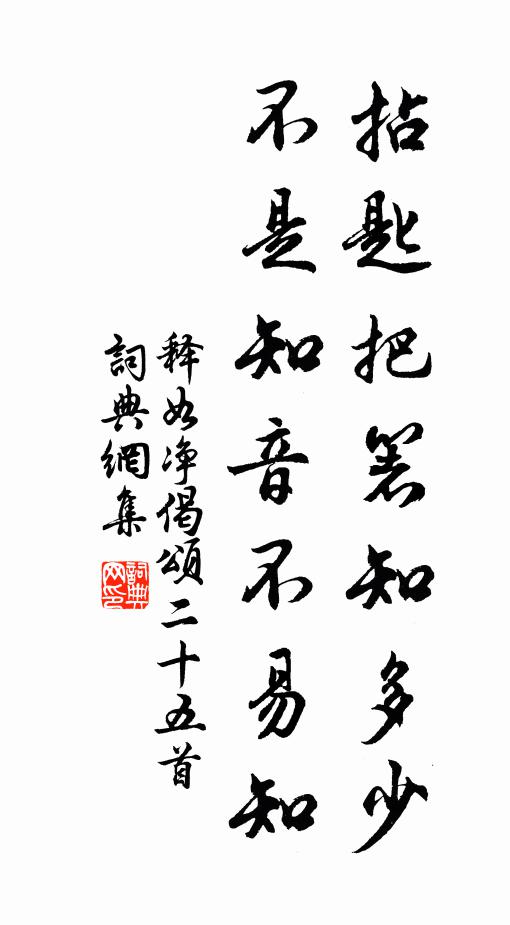 拈匙把箸知多少
不是知音不易知
释如净偈颂二十五首
詞典網集
詞典
网印